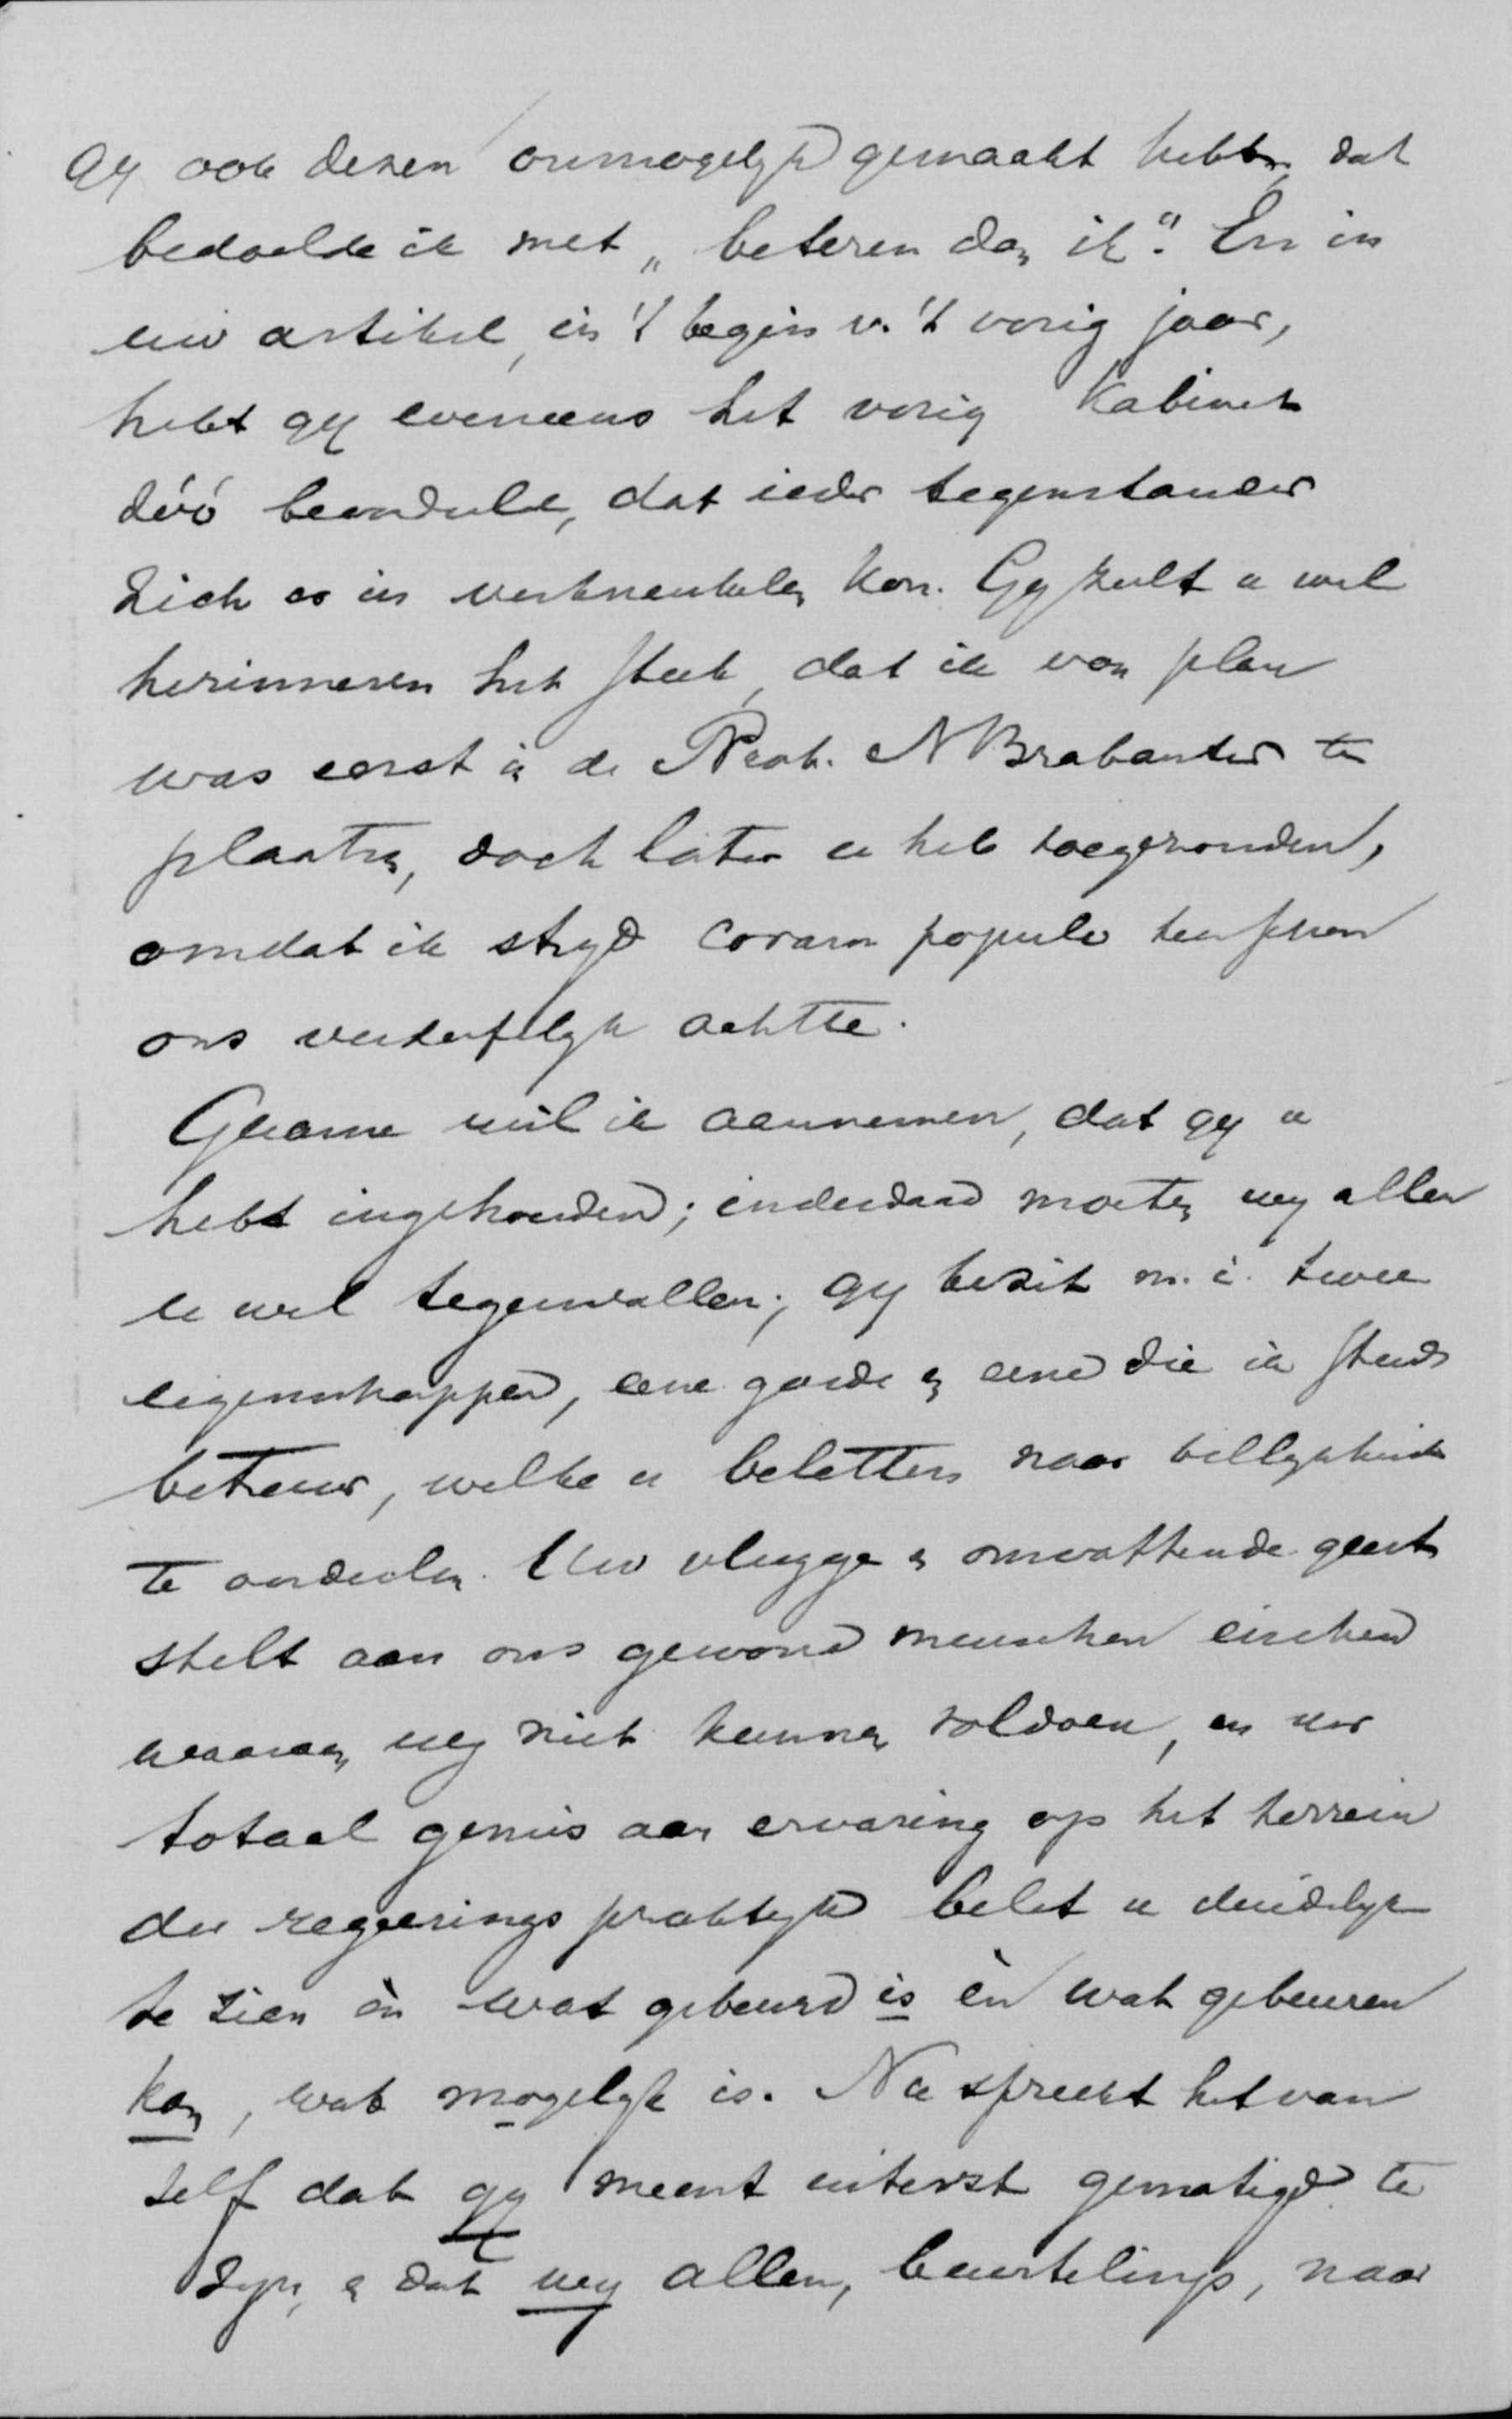 gij ook dezen onmogelijk gemaakt hebben, dat
bedoelde ik met „beteren dan ik". En in
uw artikel, in 't begin v. 't vorig jaar,
hebt gij eveneens het vorig Kabinet
dóó beoordeeld, dat ieder tegenstander
zich er in verkneukelen kon. Gij zult u wel
herinneren het stuk, dat ik van plan
was eerst in de Prov. N Brabanter te
plaatsen, doch later u heb toegezonden,
omdat ik strijd coram populo tusschen
ons verderfelijk achtte.
Gaarne wil ik aannemen, dat gij u
hebt ingehouden; inderdaad moeten wij allen
u wel tegenvallen; gij bezit m.i. twee
eigenschappen, eene goede en eene die ik steeds
betreur, welke u beletten naar billijkheid
te oordeelen. Uw vlugge en omvattende geest
stelt aan ons gewone menschen eischen
waaraan wij niet kunnen voldoen, en uw
totaal gemis aan ervaring op het terrein
der regeerings praktijk belet u duidelijk
te zien èn wat gebeurd is èn wat gebeuren
kan, wat mogelijk is. Nu spreekt het van
zelf dat gij meent uiterst gematigd te
zijn, en dat wij allen, beurtelings, naar